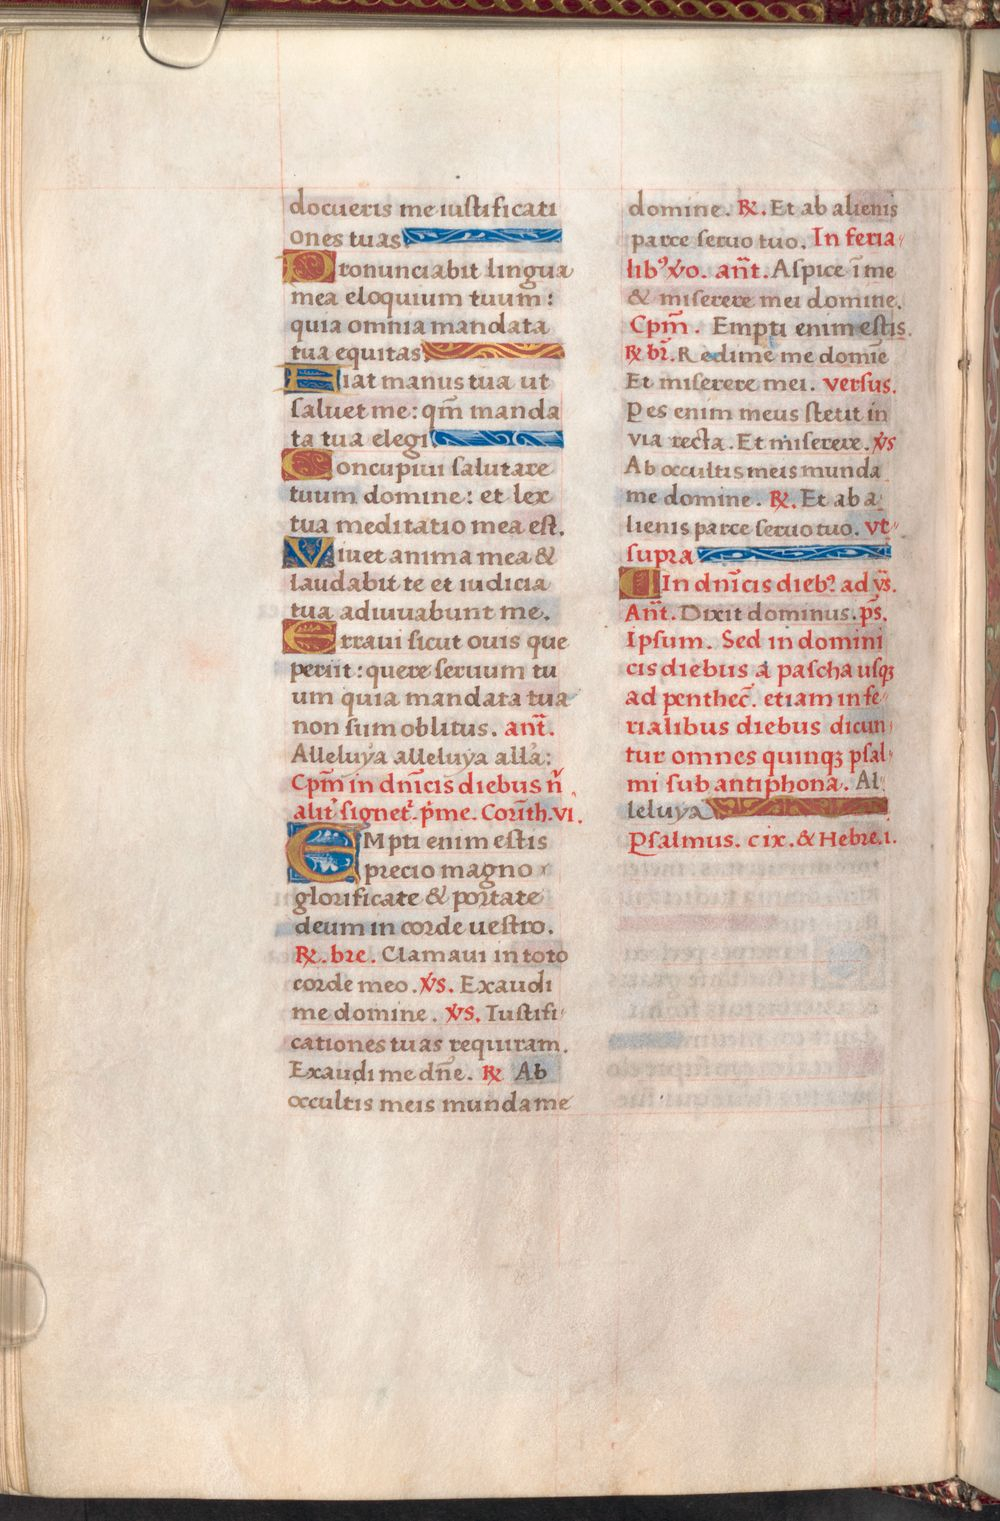 docueris me iustificati
ones tuas
Pronunciabit lingua
mea eloquium tuum:
quia omnia mandata
tua equitas
Fiat manus tua ut
saluet me: qm̃ manda
ta tua elegi
Concupiui salutare
tuum domine: et lex
tua meditatio mea est.
Viuet anima mea &
laudabit te et iudicia
tua adiuuabunt me.
Erraui sicut ouis que
periit: quere seruum tu
um quia mandata tua
non sum oblitus. ant̃.
Alleluya alleluya alla:
Cpm̃ in dñicis diebus ñ
alit᷑ signet᷑. p̃me. Corĩth. VI.
EMpti enim estis
precio magno
glorificate & portate
deum in corde uestro.
℟. bre. Clamaui in toto
corde meo. v̓s. Exaudi
me domine. v̓s. Iustifi
cationes tuas requiram.
Exaudi me dñe. ℟ Ab
occultis meis munda me
domine. ℟. Et ab alienis
parce seruo tuo. In feria
libꝰ v̓o. añt. Aspice ĩ me
& miserere mei domine.
Cpm̃. Empti enim estis.
℟ br̃. Redime me domiẽ
Et miserere mei. versus.
Pes enim meus stetit in
via recta. Et miserere. v̓s
Ab occultis meis munda
me domine. ℟. Et ab a
lienis parce seruo tuo. vt
supra
In dñicis diebꝰ ad ṽs.
Añt. Dixit dominus. p̃s.
Ipsum. Sed in domini
cis diebus a pascha usqꝫ
ad penthec̃. etiam in fe
rialibus diebus dicun
tur omnes quinqꝫ psal
mi sub antiphona. Al
leluya
Psalmus. cix. & Hebre. i.